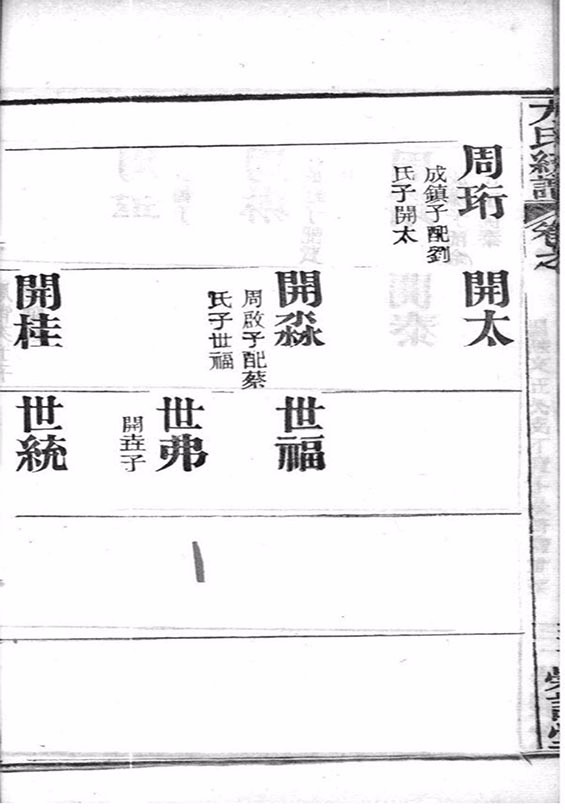 周珩
成鎮子配劉
氏子開太
開太
開淼
周啟子配蔡
氏子世福
開桂
世福
世弗
開垚子
世統